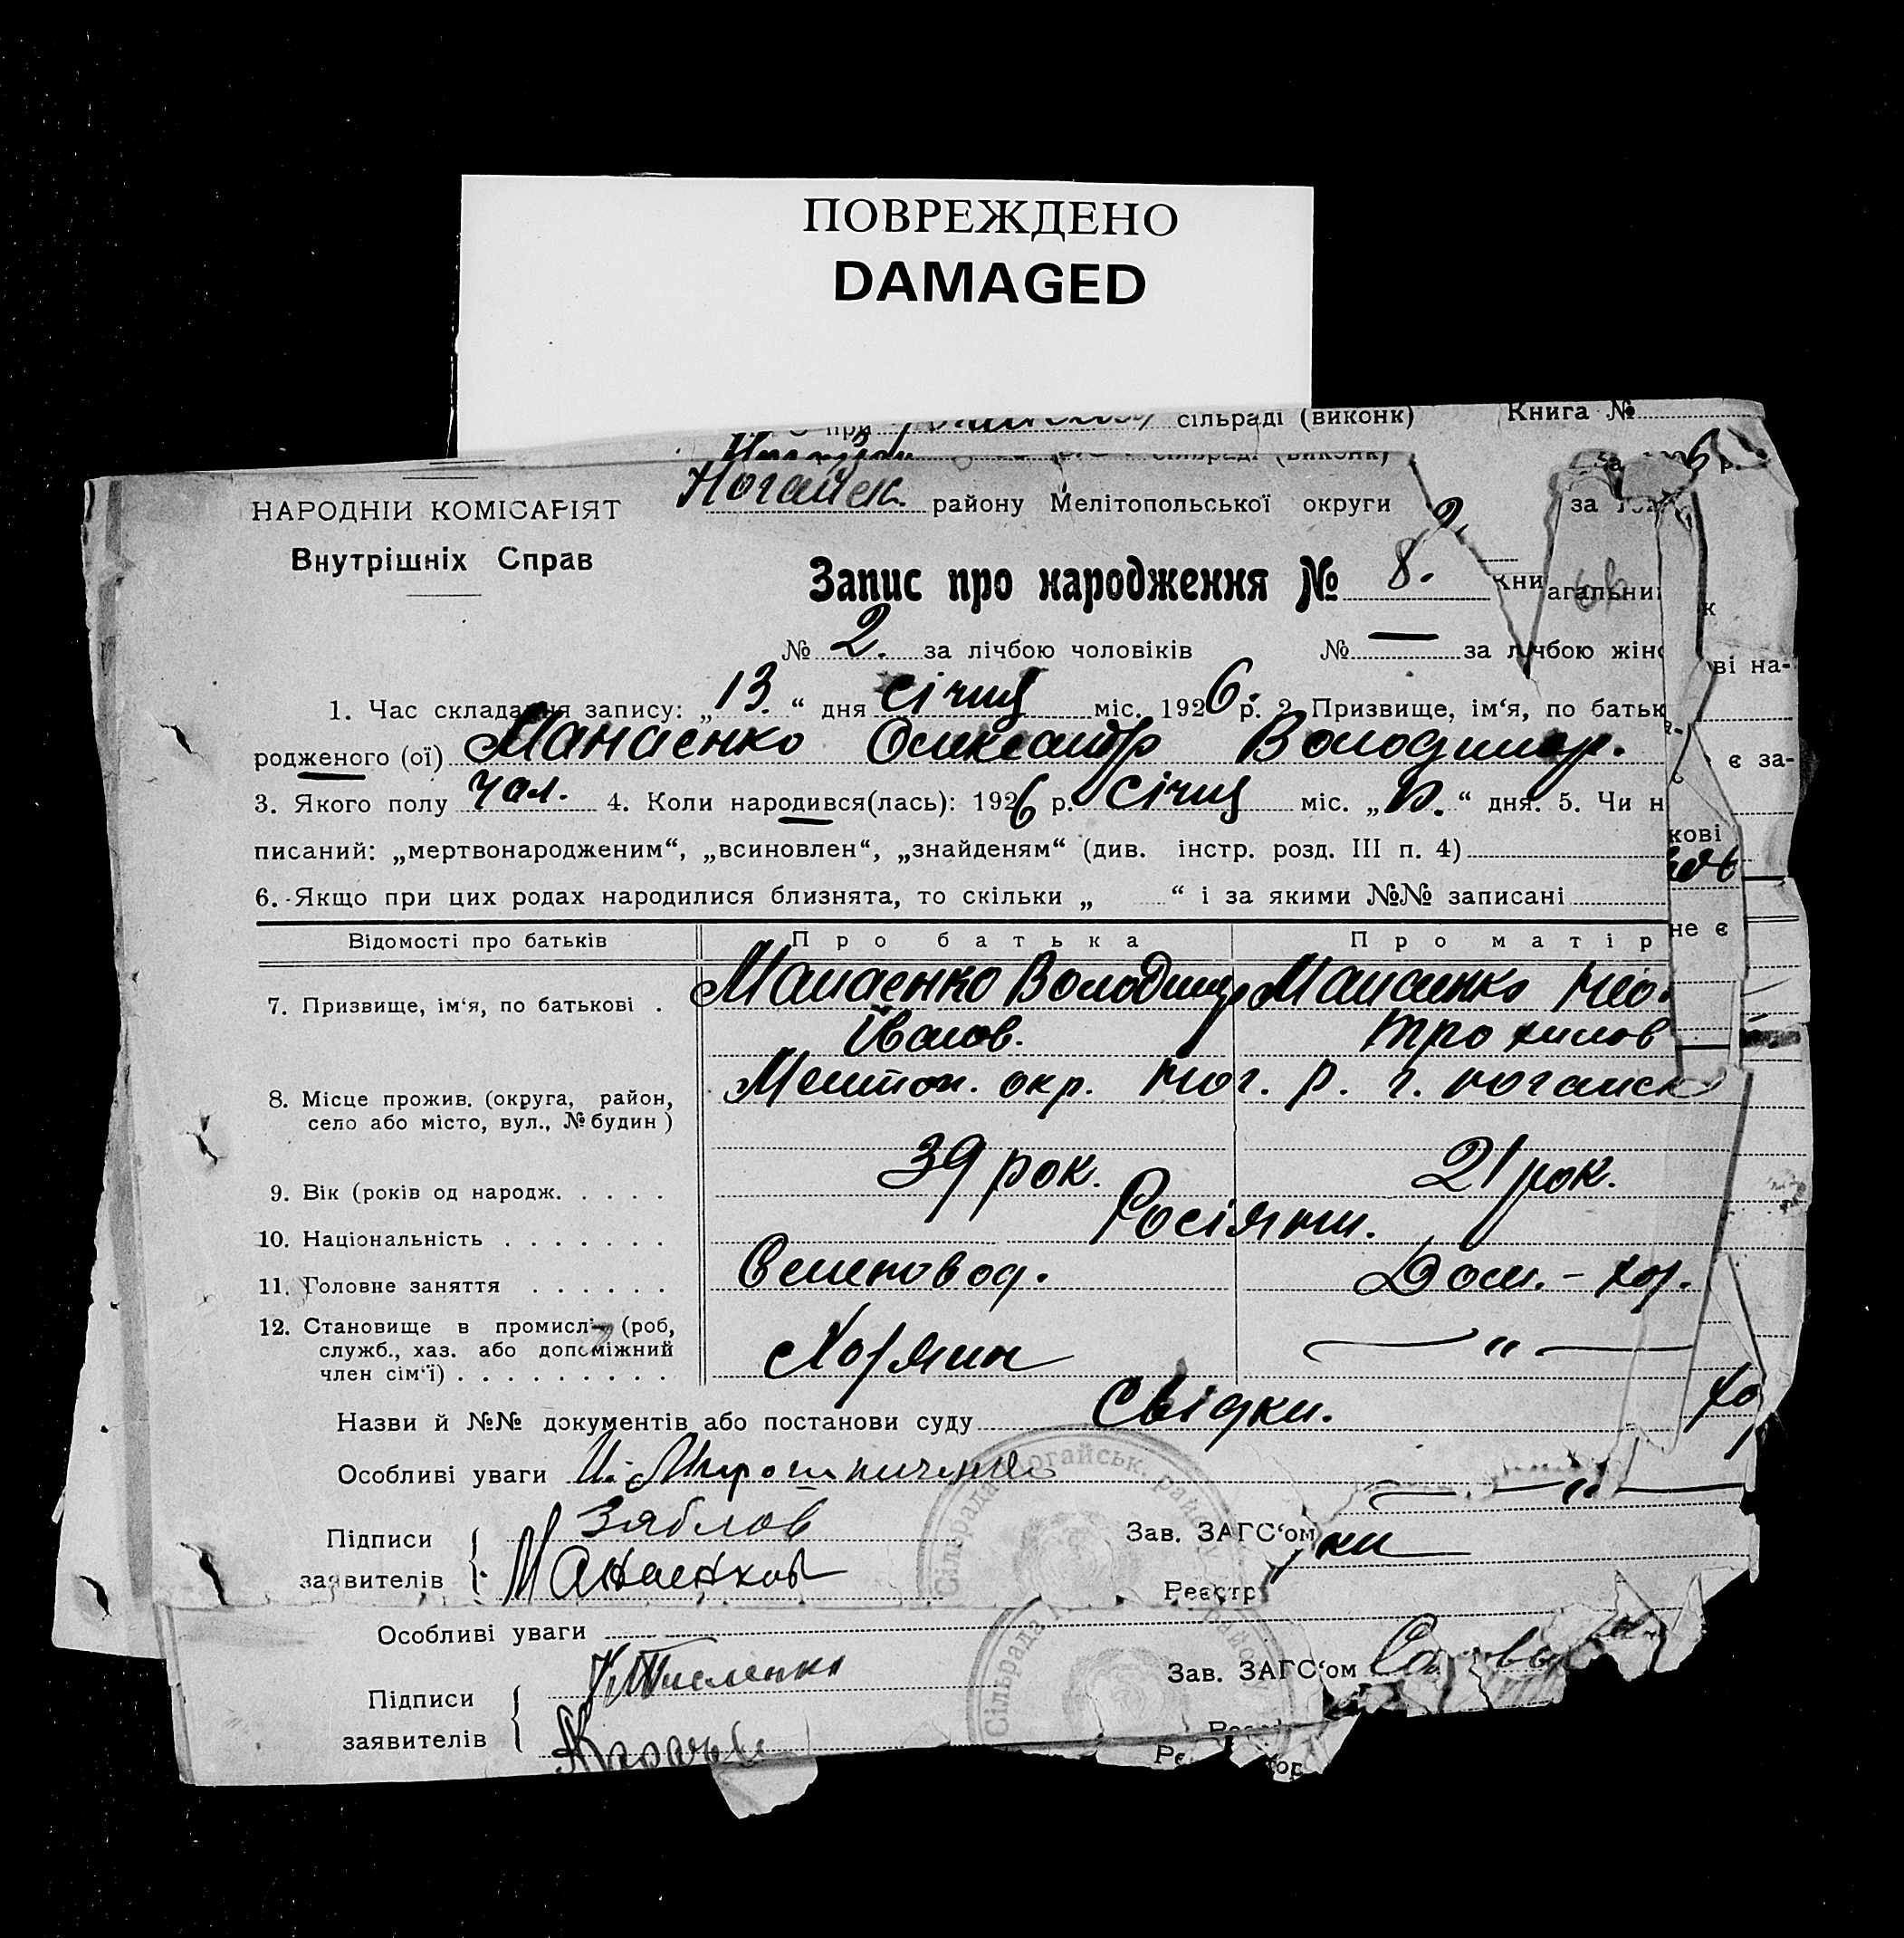 ПОВРЕЖДЕНО
DAMAGED
при сільраді (виконк) Книга №
НАРОДНІЙ КОМІСАРІЯТ
Внутрішніх Справ
Ногайск. району Мелітопольської округи за
Запис про народження № 8.
№ 2. за лічбою чоловіків № — за лічбою жін
1. Час складання запису: „13.“ дня січня міс. 1926 р. 2. Призвище, ім‘я, по батьк
родженого (ої) Манаенко Олександр Володимер.
3. Якого полу чол. 4. Коли народився(лась): 1926 р. січня міс. „ “ дня. 5. Чи н
писаний: „мертвонародженим“, „всиновлен“, „знайденям“ (див. інстр. розд. III п. 4)
6. Якщо при цих родах народилися близнята, то скільки „ “ і за якими №№ записані
Відомості про батьків Про батька Про матір
7. Призвище, ім‘я, по батькові . Манаенко Володимер Манаенко
Іванов. Трохимов
8. Місце прожив. (округа, район, Мелітоп. окр. Ног. р. г. Ногайск
село або місто, вул., № будин )
9. Вік (років од народж. . . . . 39 рок. 21 рок.
10. Національність . . . . . . . Росіяни.
11. Головне заняття . . . . . . Дом.-хоз.
12. Становище в промислі (роб,
служб., хаз. або допоміжний Хозяин — „ —
член сім‘ї) . . . . . . . . .
Назви й №№ документів або постанови суду Свідки.
Особливі уваги
Підписи Зяблов Зав. ЗАГС‘ом
заявителів Манаенков Реєстр
Особливі уваги
Підписи Зав. ЗАГС‘ом
заявителів